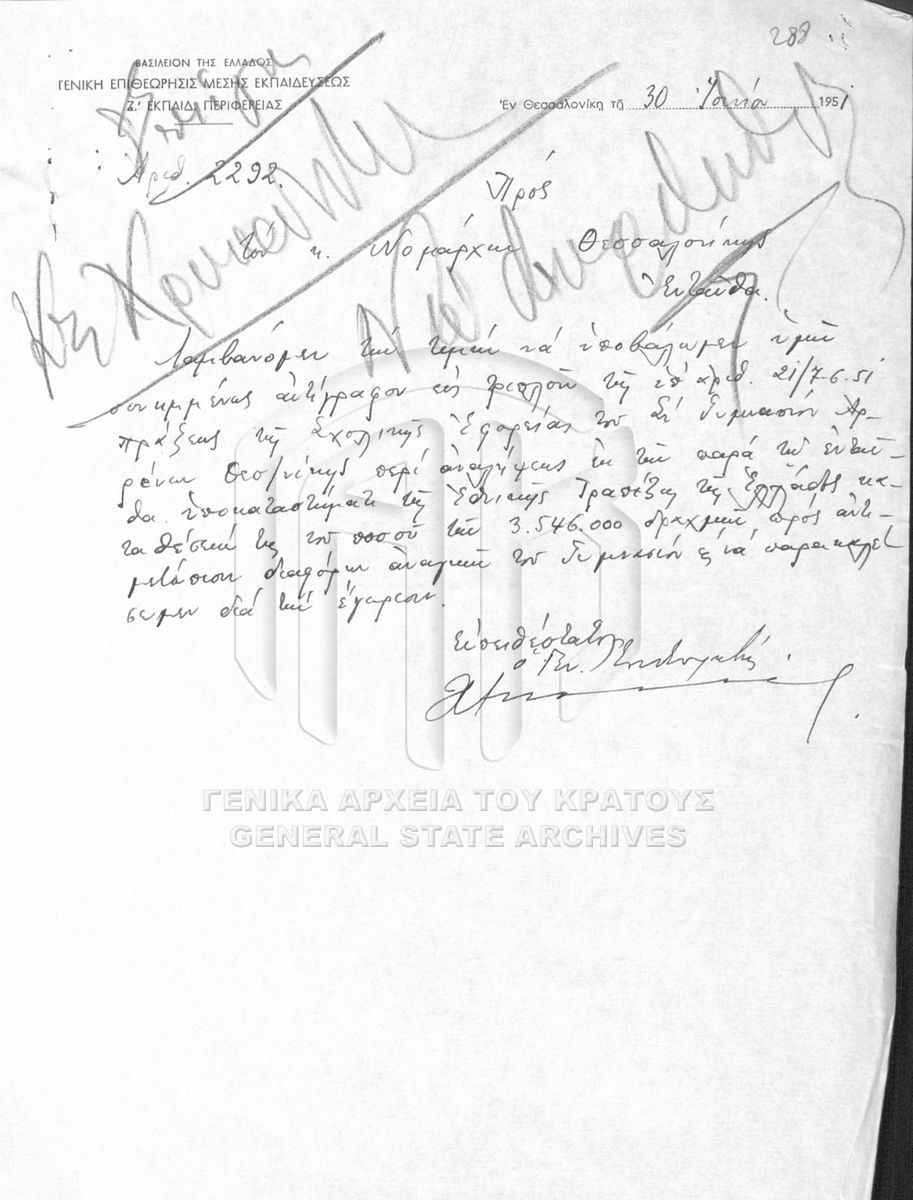 288
ΒΑΣΙΛΕΙΟΝ ΤΗΣ ΕΛΛΑΔΟΣ
ΓΕΝΙΚΗ ΕΠΙΘΕΩΡΗΣΙΣ ΜΕΣΗΣ ΕΚΠΑΙΔΕΥΣΕΩΣ
Ζ.' ΕΚΠΑΙΔ. ΠΕΡΙΦΕΡΕΙΑΣ
Ἐν Θεσσαλονίκῃ τῇ 30 Ἰουνίου 1951
Ἀριθ. 2292.
Πρός
τόν κ. Νομάρχην Θεσσαλονίκης
Ἐνταῦθα.
Λαμβάνομεν τήν τιμήν νά ὑποβάλωμεν ὑμῖν
συνημμένως ἀντίγραφον εἰς τριπλοῦν τῆς ὑπ' ἀριθ. 21/7-6-51
πράξεως τῆς Σχολικῆς Ἐφορείας τοῦ Γυμνασίου Ἀρ-
ρένων Θεσ/νίκης περί ἀναλήψεως ἐκ τῶν παρά τῷ ἐνταῦ-
θα ὑποκαταστήματι τῆς Ἐθνικῆς Τραπέζης τῆς Ἑλλάδος κα-
ταθέσεών της τοῦ ποσοῦ τῶν 3.546.000 δραχμῶν πρός ἀντι-
μετώπισιν διαφόρων ἀναγκῶν τοῦ Γυμνασίου καί νά παρακαλέ-
σωμεν διά τήν ἔγκρισιν.
Εὐπειθέστατος
ὁ Γεν. Ἐπιθεωρητής
ΓΕΝΙΚΑ ΑΡΧΕΙΑ ΤΟΥ ΚΡΑΤΟΥΣ
GENERAL STATE ARCHIVES